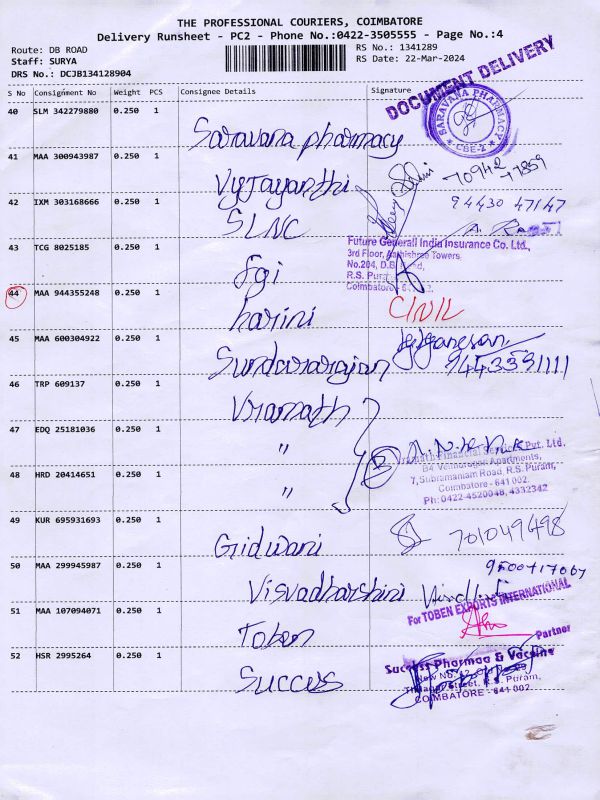 THE PROFESSIONAL COURIERS, COIMBATORE
Delivery Runsheet - PC2 - Phone No.:0422-3505555 - Page No.:4
Route: DB ROAD
Staff: SURYA
DRS No.: DCJB134128904
RS No.: 1341289
RS Date: 22-Mar-2024
DOCUMENT DELIVERY
S No Consignment No Weight PCS Consignee Details Signature
40 SLM 342279880 0.250 1 Saravana pharmacy
SARAVANA PHARMACY
CBE-2
41 MAA 300943987 0.250 1 Vyjayanthi 70942
77859
42 IXM 303168666 0.250 1 SLNC 94430 47147
43 TCG 8025185 0.250 1 fgi
Future Generali India Insurance Co. Ltd.,
3rd Floor, Towers
No.204, D.B. Road,
R.S. Puram
Coimbatore
44 MAA 944355248 0.250 1 harini CIVIL
45 MAA 600304922 0.250 1 Sundararajan
9443391111
46 TRP 609137 0.250 1
47 EDQ 25181036 0.250 1 "
Financial Services Pvt. Ltd.
B4 Apartments,
7, Subramaniam Road, R.S. Puram,
Coimbatore - 641 002.
Ph: 0422-4520048, 4332342
48 HRD 20414651 0.250 1 "
49 KUR 695931693 0.250 1 Gridwani 701049498
50 MAA 299945987 0.250 1 Visvadharshini
9500717067
51 MAA 107094071 0.250 1 Toben
For TOBEN EXPORTS INTERNATIONAL
Partner
52 HSR 2995264 0.250 1 Succus
Success Pharmaa & Vaccine
New No.
Street, R.S. Puram,
COIMBATORE - 641 002.